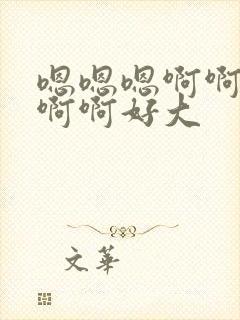 嗯嗯嗯啊啊
啊啊好大
文華